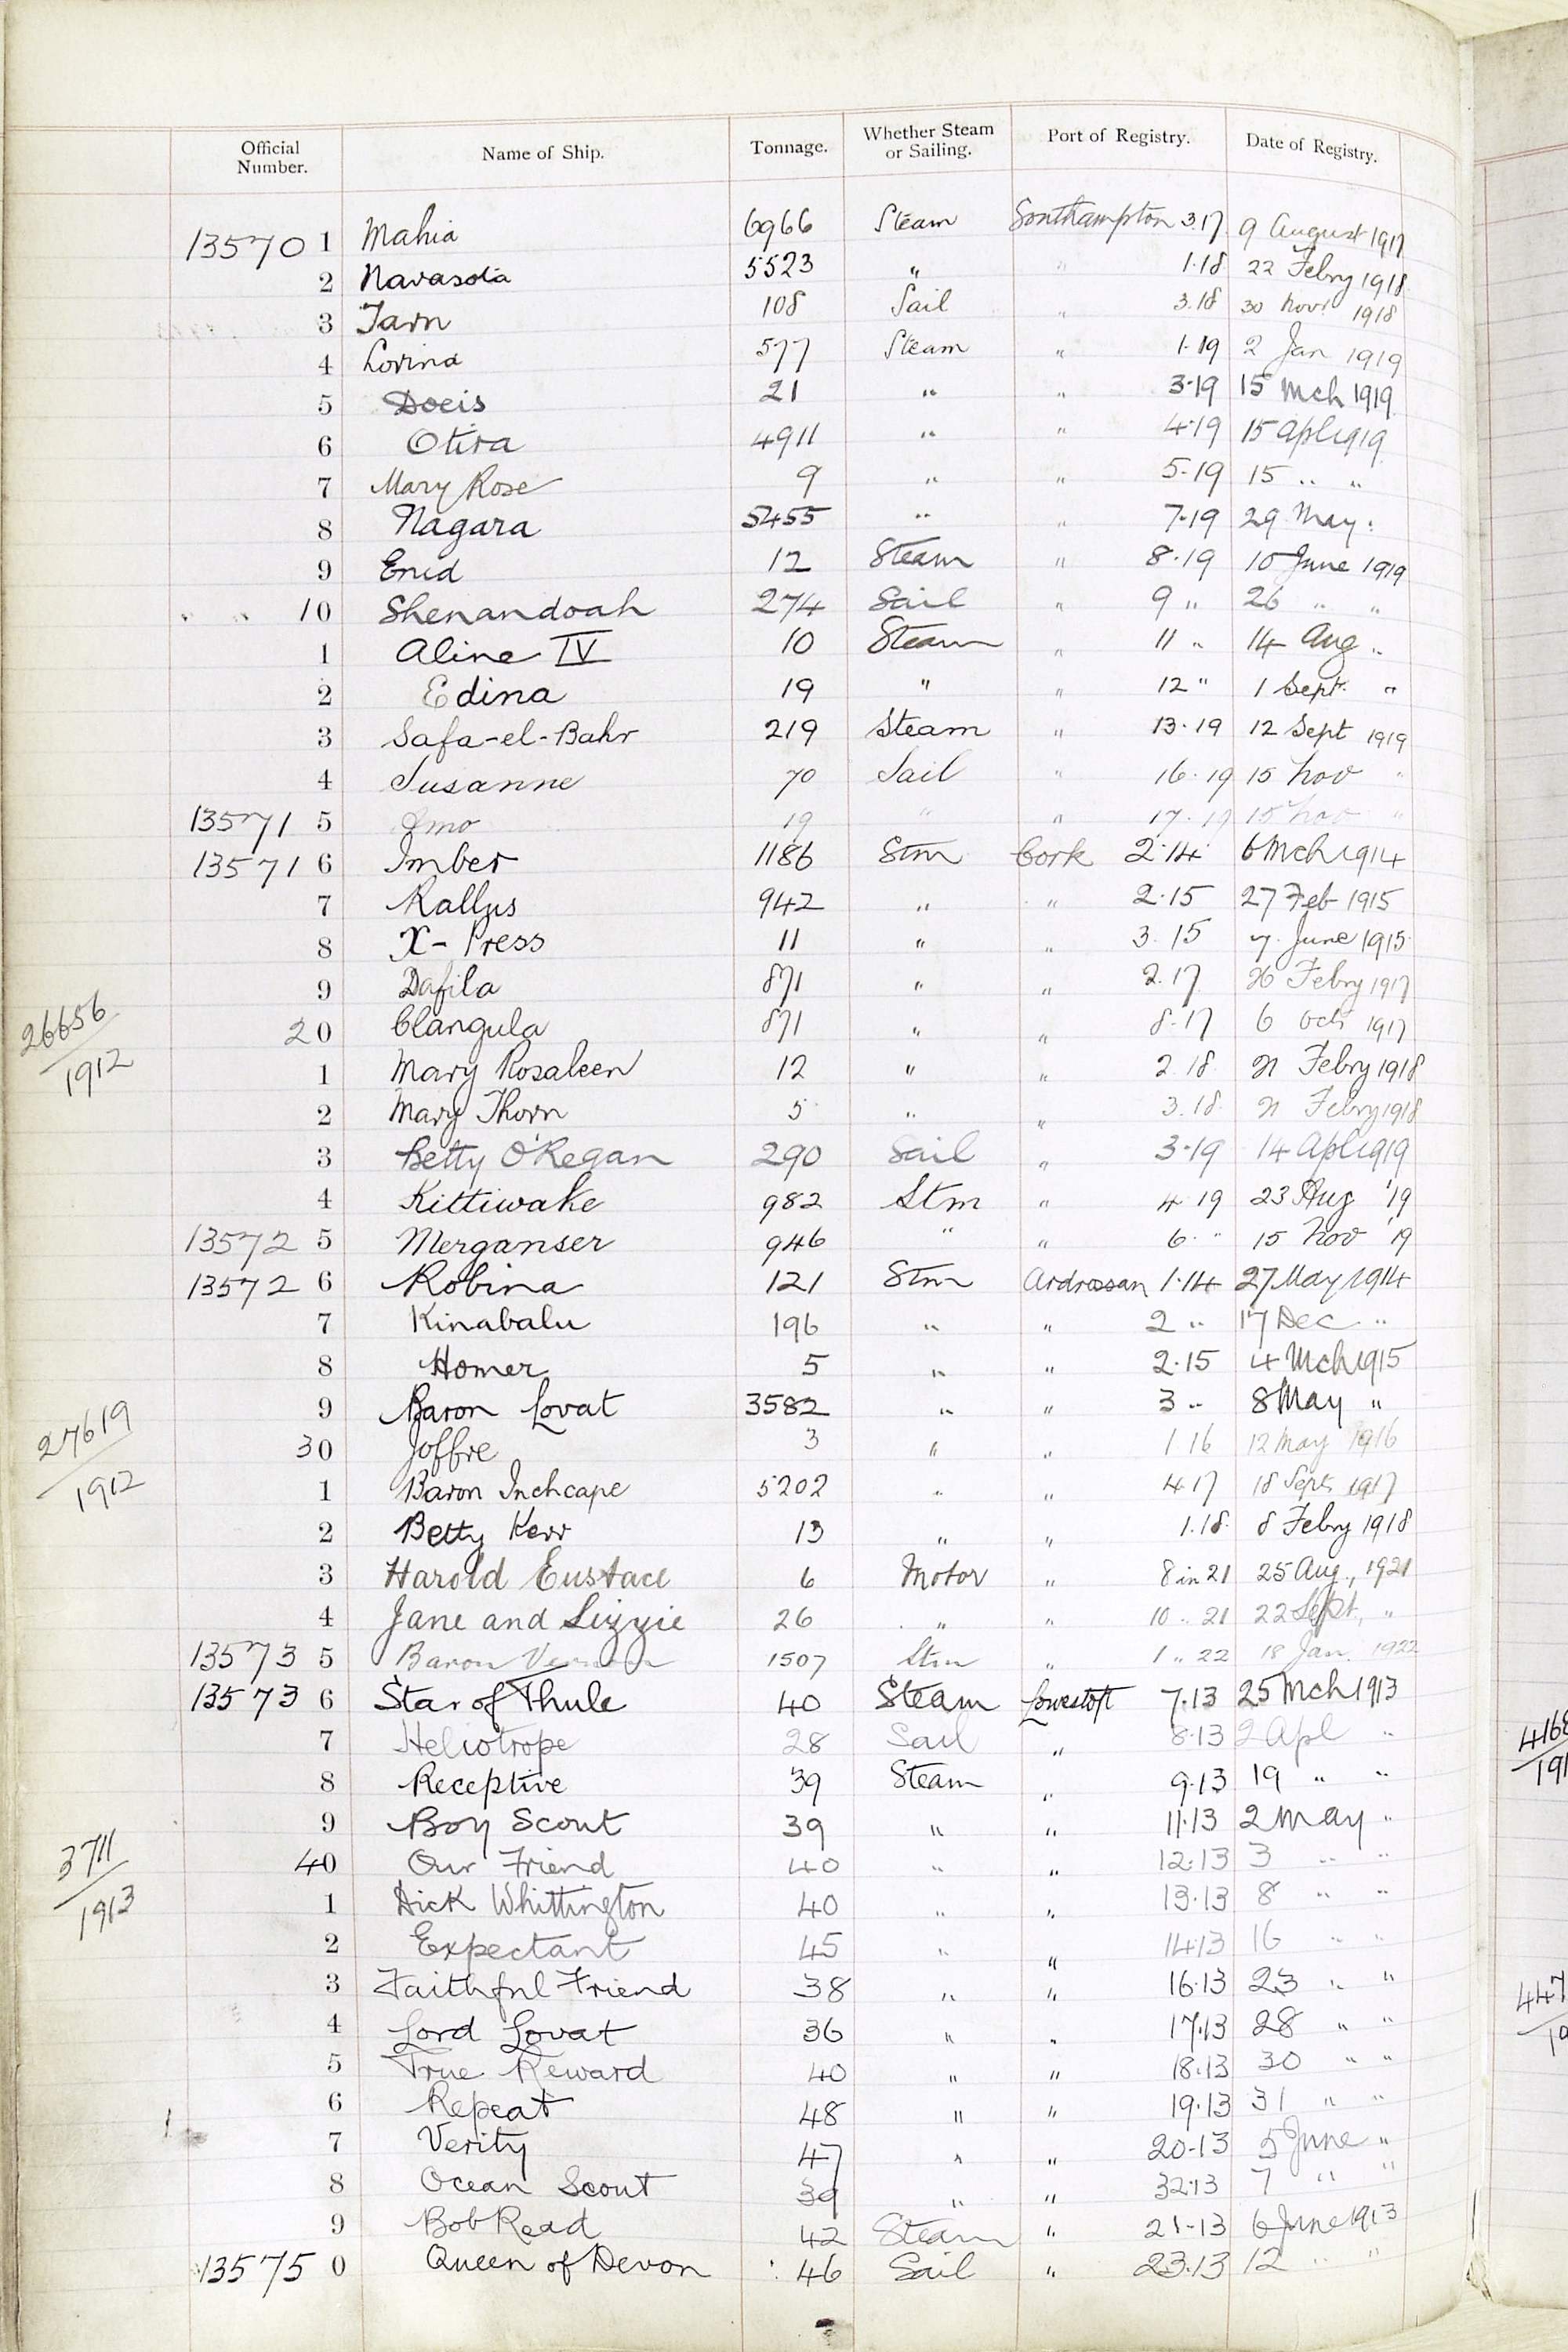 Official Number. Name of Ship. Tonnage. Whether Steam or Sailing. Port of Registry. Date of Registry.
13570 1 Mahia 6966 Steam Southampton 3.17 9 August 1917
2 Navasota 5523 " " 1.18 22 Febry 1918
3 Tarn 108 Sail " 3.18 30 Novr 1918
4 Lorina 577 Steam " 1.19 2 Jan 1919
5 21 " " 3.19 15 Mch 1919
6 Otira 4911 " " 4.19 15 Apl 1919
7 Mary Rose 9 " " 5.19 15 " "
8 Nagara 5455 " " 7.19 29 May :
9 Enid 12 Steam " 8.19 10 June 1919
" " 10 Shenandoah 274 Sail " 9 " 26 " "
1 Aline IV 10 Steam " 11 " 14 Aug "
2 Edina 19 " " 12 " 1 Sept. "
3 Safa-el-Bahr 219 Steam " 13.19 12 Sept 1919
4 Susanne 70 Sail " 16.19 15 Nov "
13571 5 19 " " 17.19 15 Nov "
13571 6 Imber 1186 Stm Cork 2.14 6 Mch 1914
7 Rallus 942 " " 2.15 27 Feb 1915
8 X-Press 11 " " 3.15 7 June 1915
9 Dafila 871 " " 2.17 26 Febry 1917
26656/1912
20 Clangula 871 " " 8.17 6 Oct 1917
1 Mary Rosaleen 12 " " 2.18 21 Febry 1918
2 Mary Thorn 5 " " 3.18 21 Febry 1918
3 Betty O'Regan 290 Sail " 3.19 14 Apl 1919
4 Kittiwake 982 Stm " 4 19 23 Aug '19
13572 5 Merganser 946 " " 6. " 15 Nov '19
13572 6 Robina 121 Stm Ardrossan 1.14 27 May 1914
7 Kinabalu 196 " " 2 " 17 Dec "
8 Homer 5 " " 2.15 4 Mch 1915
9 Baron Lovat 3582 " " 3 " 8 May "
27619/1912
30 Joffre 3 " " 1 16 12 May 1916
1 Baron Inchcape 5202 " " 4.17 18 Sept 1917
2 Betty Kerr 13 " " 1.18 8 Febry 1918
3 Harold Eustace 6 Motor " 8 in 21 25 Aug., 1921
4 Jane and Lizzie 26 " " 10 " 21 22 Sept, "
13573 5 Baron Vernon 1507 Stm " 1 " 22 18 Jan. 1922
13573 6 Star of Thule 40 Steam Lowestoft 7.13 25 Mch 1913
7 Heliotrope 28 Sail " 8.13 2 Apl "
8 Receptive 39 Steam " 9.13 19 " "
9 Boy Scout 39 " " 11.13 2 May "
3711/1913
40 Our Friend 40 " " 12.13 3 " "
1 Dick Whittington 40 " " 13.13 8 " "
2 Expectant 45 " " 14.13 16 " "
3 Faithful Friend 38 " " 16.13 23 " "
4 Lord Lovat 36 " " 17.13 28 " "
5 True Reward 40 " " 18.13 30 " "
6 Repeat 48 " " 19.13 31 " "
7 Verity 47 " " 20.13 5 June "
8 Ocean Scout 39 " " 32.13 7 " "
9 Bob Read 42 Steam " 21.13 6 June 1913
13575 0 Queen of Devon 46 Sail " 23.13 12 " "